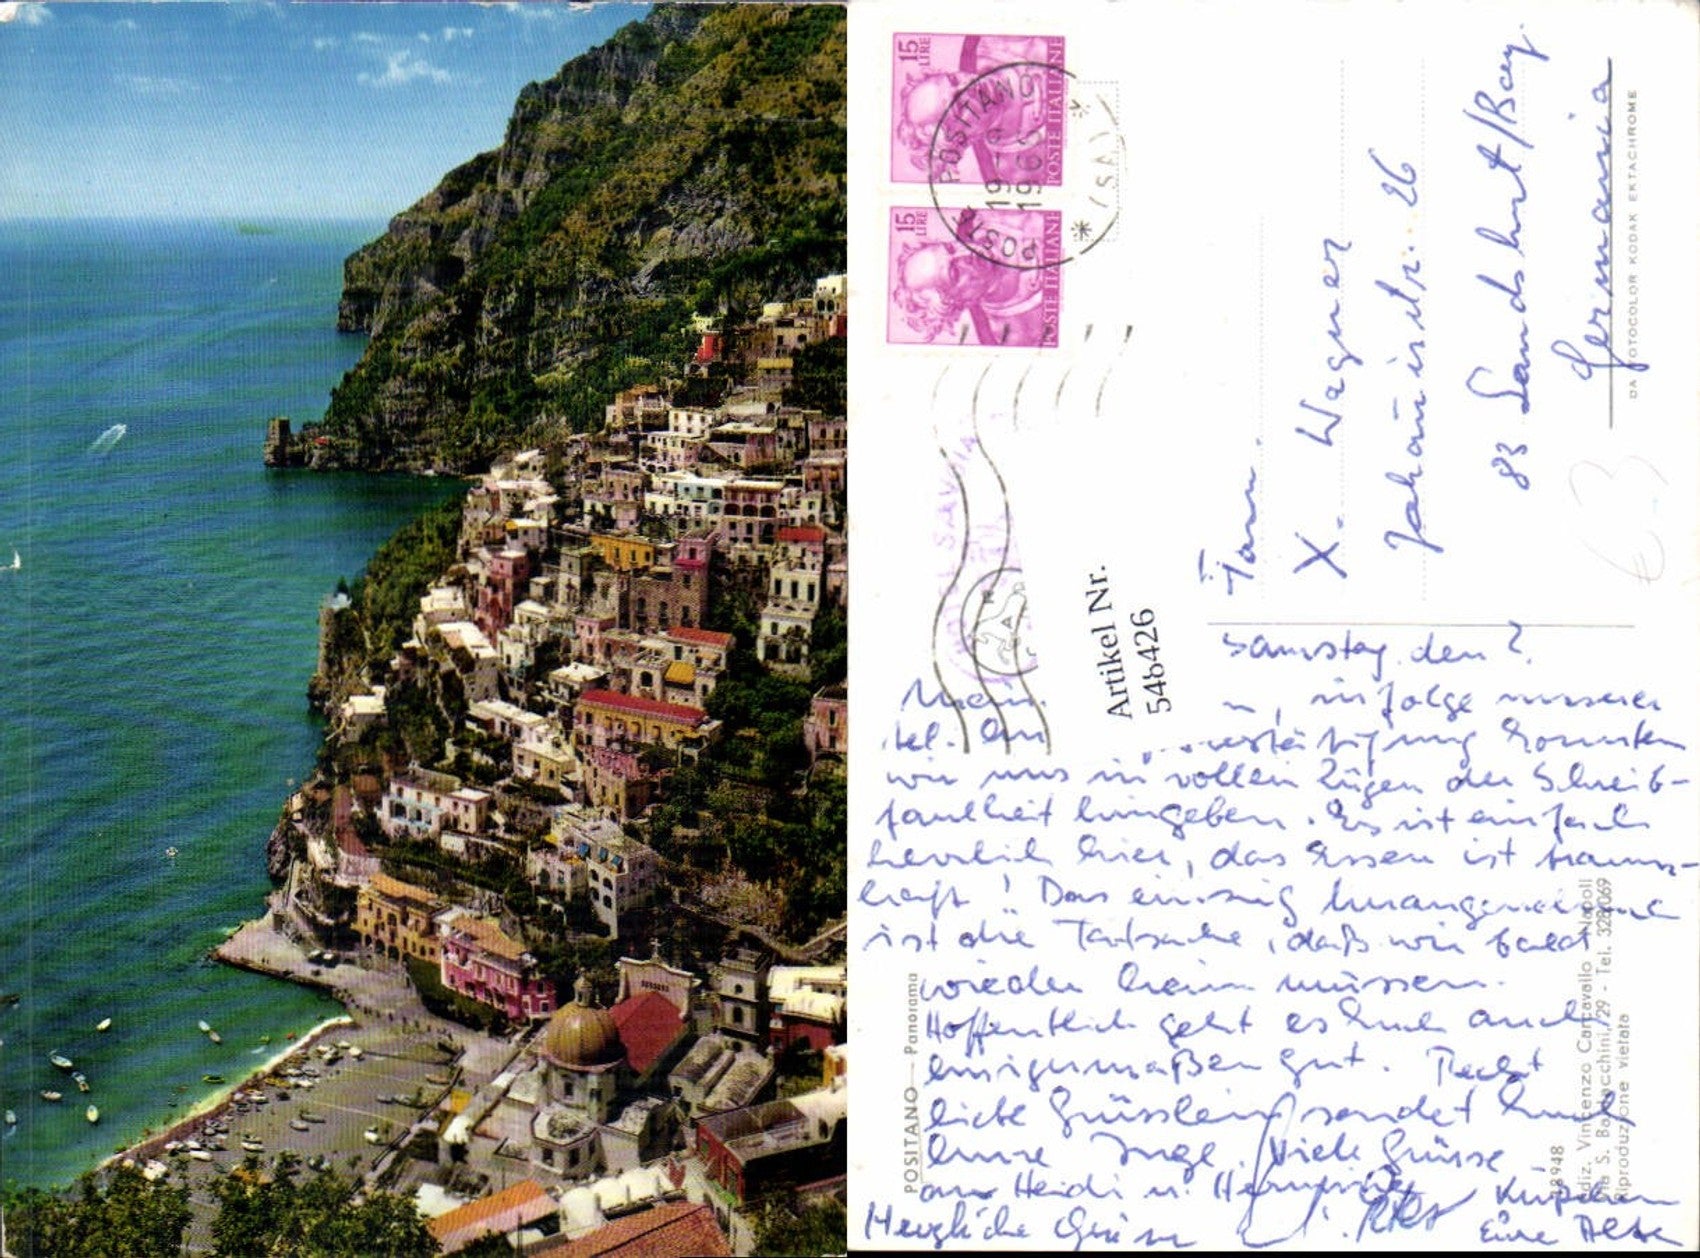 15 LIRE
POSTE ITALIANE
15 LIRE
POSTE ITALIANE
POSITANO
19
196
(SA)
Artikel Nr.
54b426
Fam.
X. Wagner
26
83 Landshut/Bay.
Germania
DA FOTOCOLOR KODAK EKTACHROME
€ 3
Samstag, den 2.
infolge unserer
tel. konnten
wir uns in vollen Zügen der Schreib-
faulheit hingeben. Es ist einfach
herrlich hier, das Essen ist traum-
haft! Das einzig Unangenehme
ist die Tatsache, daß wir bald
wieder heim müssen.
Hoffentlich geht es Euch auch
einigermaßen gut. Recht
liebe Grüsslein sendet Euch
Eure Inge. Viele Grüsse
an Heidi u.
Herzliche Grüsse Eure
POSITANO - Panorama
8948
Ediz. Vincenzo Carcavallo - Napoli
Via S. Baldacchini, 29 - Tel. 328069
Riproduzione vietata